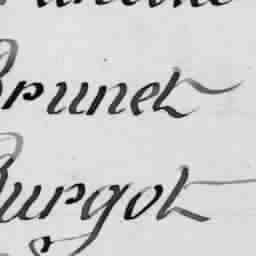 Brunet
Burgot